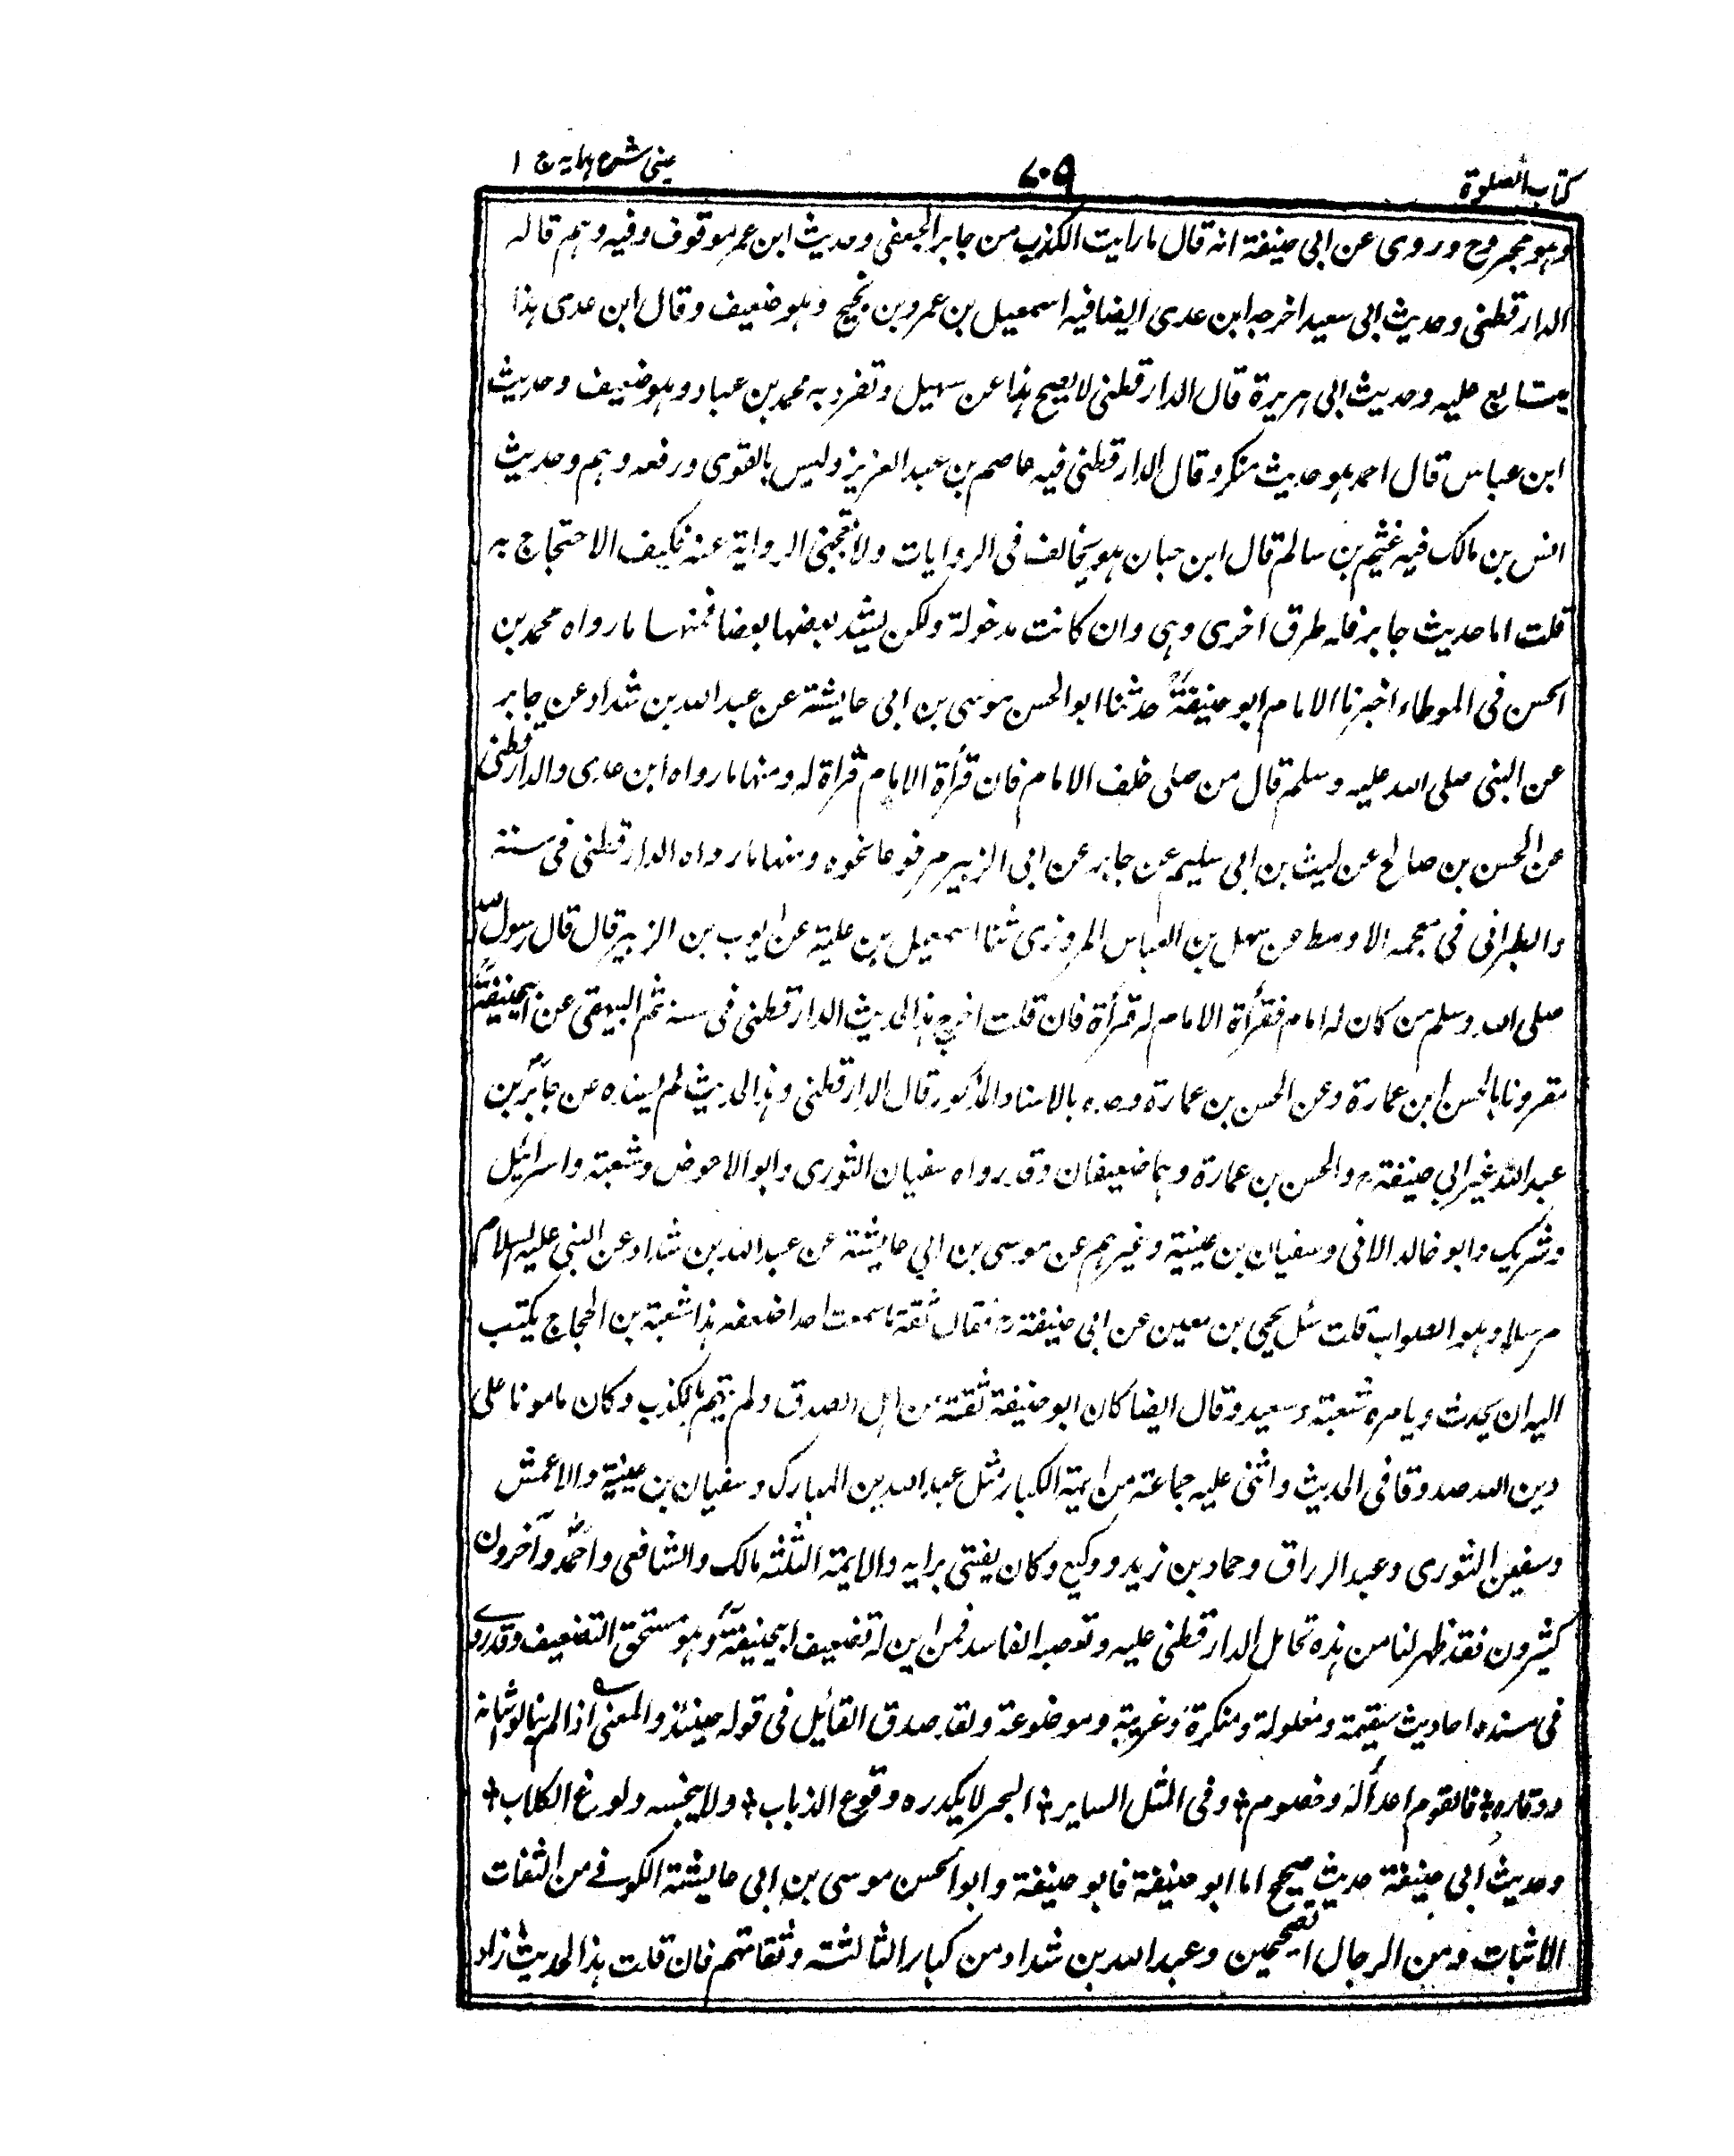 كتاب الصلوة
٧٠٩
عینی شرح ہدایہ ج ١
وهو مجروح وروى عن ابى حنيفة انه قال ما رايت الكذب من جابر الجعفى وحديث ابن عمر موقوف وفيه وهم قاله
الدارقطنى وحديث ابى سعيد اخرجه ابن عدى ايضا فيه اسمعيل بن عمرو بن نجيح وهو ضعيف وقال ابن عدى هذا
يتابع عليه وحديث ابى هريرة قال الدارقطنى لا يصح هذا عن سهيل وتفرد به محمد بن عباد وهو ضعيف وحديث
ابن عباس قال احمد هو حديث منكر وقال الدارقطنى فيه عاصم بن عبد العزيز وليس بالقوى ورفعه وهم وحديث
انس بن مالك فيه غنيم بن سالم قال ابن حبان هو يخالف فى الروايات ولا تعجبنى الرواية عنه فكيف الاحتجاج به
قلت اما حديث جابر فله طرق اخرى وهى وان كانت مدخولة ولكن يشد بعضها بعضا فمنها ما رواه محمد بن
الحسن فى الموطاء اخبرنا الامام ابو حنيفة حدثنا ابو الحسن موسى بن ابى عايشة عن عبد الله بن شداد عن جابر
عن النبى صلى الله عليه وسلم قال من صلى خلف الامام فان قرأة الامام قراة له ومنها ما رواه ابن عدى والدارقطنى
عن الحسن بن صالح عن ليث بن ابى سليم عن جابر عن ابى الزبير مرفوعا نحوه ومنها ما رواه الدارقطنى فى سننه
والطبرانى فى معجمه الاوسط عن سهل بن العباس المروزى ثنا اسمعيل بن علية عن ايوب بن الزبير قال قال رسول الله
صلى الله وسلم من كان له امام فقرأة الامام له قرأة فان قلت اخرج هذا الحديث الدارقطنى فى سننه ثم البيهقى عن ابيحنيفة
مقرونا بالحسن ابن عمارة وعن الحسن بن عمارة وحده بالاسناد المذكور قال الدارقطنى وهذا الحديث لم يسنده عن جابر بن
عبد الله غير ابي حنيفة والحسن بن عمارة وهما ضعيفان وقد رواه سفيان الثورى وابو الاحوص وشعبته واسرائيل
وشريك وابو خالد الافى وسفيان بن عينية وغيرهم عن موسى بن ابي عايشة عن عبد الله بن شداد عن النبى عليه السلام
مرسلا وهو الصواب قلت سئل يحيى بن معين عن ابى حنيفة فقال ثقة ما سمعت احدا ضعفه هذا شعبة بن الحجاج يكتب
اليه ان يحدث ويامره شعبته وسعيد وقال ايضا كان ابو حنيفة ثقة من اهل الصدق ولم يتهم بالكذب وكان مامونا على
دين الله صدوقا فى الحديث واثنى عليه جماعة من ايمة الكبار مثل عبد الله بن المبارك وسفيان بن عينية والاعمش
وسفين الثورى وعبد الرزاق وحماد بن زيد ووكيع وكان يفتى برايه والايمة الثلثه مالك والشافعى واحمد وآخرون
كثيرون فقد ظهر لنا من هذه تحامل الدارقطنى عليه وتعصبه الفاسد فمن اين له تضعيف ابيحنيفة وهو مستحق التضعيف وقد روى
فى مسنده احاديث سقيمة ومعلولة ومنكرة وغريبة وموضوعة ولقد صدق القائل فى قوله حينئذ والمعنى اذا لم ينالوا شانه
ووقاره فالقوم اعداء له وخصوم وفى المثل الساير البحر لا يكدره وقوع الذباب ولا ينجسه ولوغ الكلاب
وحديث ابى حنيفة حديث صحيح اما ابو حنيفة فابو حنيفة وابو الحسن موسى بن ابى عايشة الكوفے من الثقات
الاثبات ومن الرجال الصحيحين وعبد الله بن شداد من كبار الثالثته وثقاتهم فان قلت هذا الحديث زاد